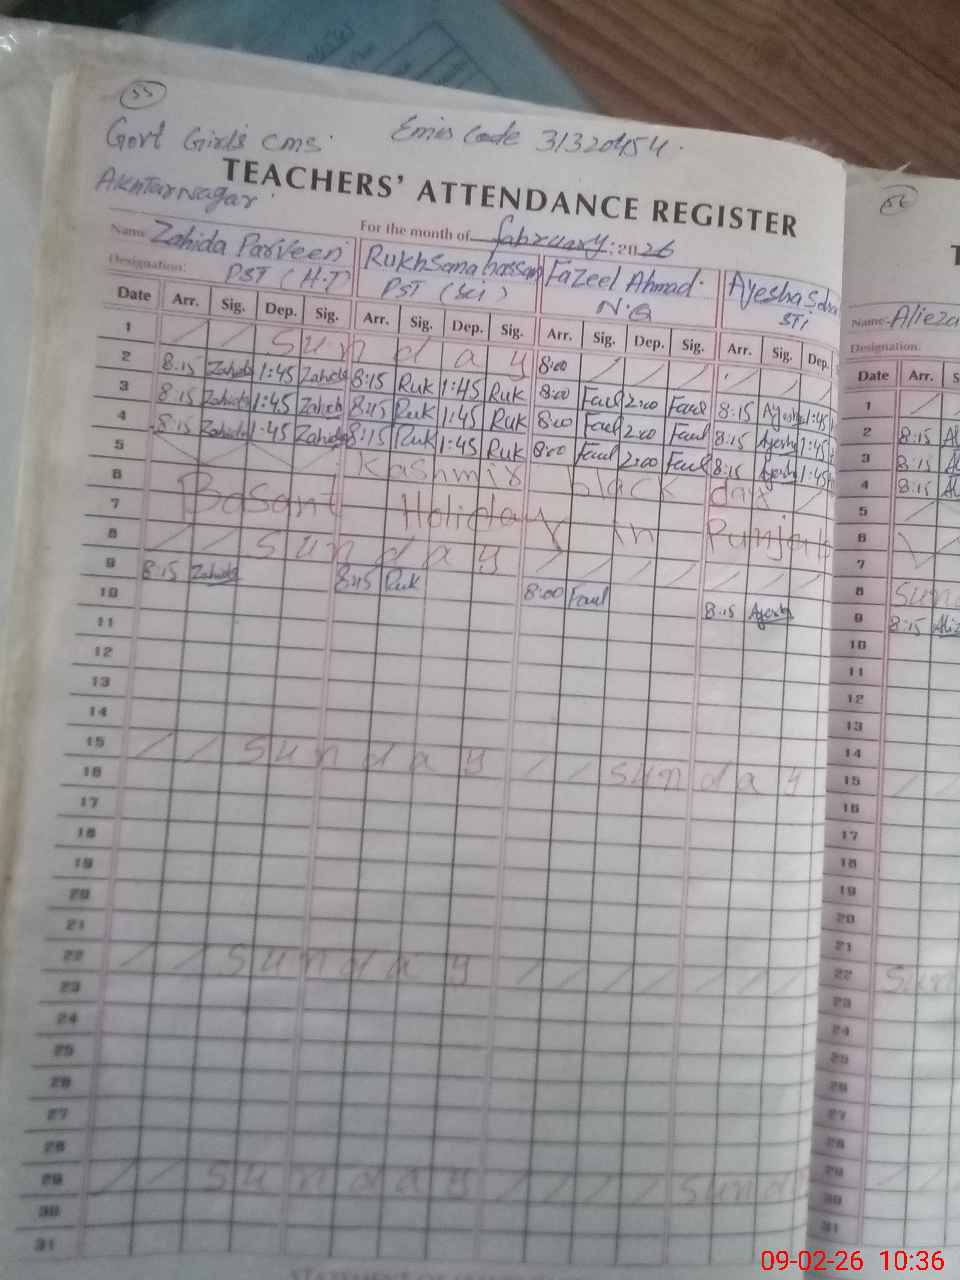 55
Govt Girls CMS Emis Code 31320454
Akhtarnagar
TEACHERS' ATTENDANCE REGISTER
For the month of february 2026
Name Zahida Parveen Rukhsana hassan Fazeel Ahmad Ayesha
Designation: PST (H.T) PST (Sci) N.Q STI
Date Arr. Sig. Dep. Sig. Arr. Sig. Dep. Sig. Arr. Sig. Dep. Sig. Arr. Sig. Dep.
1 Sunday
2 8:15 Zahida 1:45 Zahida 8:15 Ruk 1:45 Ruk 8:00 Faul 2:00 Faul 8:15 Ayesha 1:45
3 8:15 Zahida 1:45 Zahida 8:15 Ruk 1:45 Ruk 8:00 Faul 2:00 Faul 8:15 Ayesha 1:45
4 8:15 Zahida 1:45 Zahida 8:15 Ruk 1:45 Ruk 8:00 Faul 2:00 Faul 8:15 Ayesha 1:45
5 Kashmir black day
6 Basant Holiday in Punjab
7
8 Sunday
9 8:15 Zahida 8:15 Ruk 8:00 Faul 8:15 Ayesha
10
11
12
13
14
15 Sunday Sunday
16
17
18
19
20
21
22 Sunday
23
24
25
26
27
28
29 Sunday Sund
30
31
56
Name: Alieza
Designation:
Date Arr. S
1
2 8:15 Al
3 8:15 Al
4 8:15 Al
5
6
7
8 Sun
9 8:15 Aliz
10
11
12
13
14
15
16
17
18
19
20
21
22 Sun
23
24
25
26
27
28
29
30
31
09-02-26 10:36